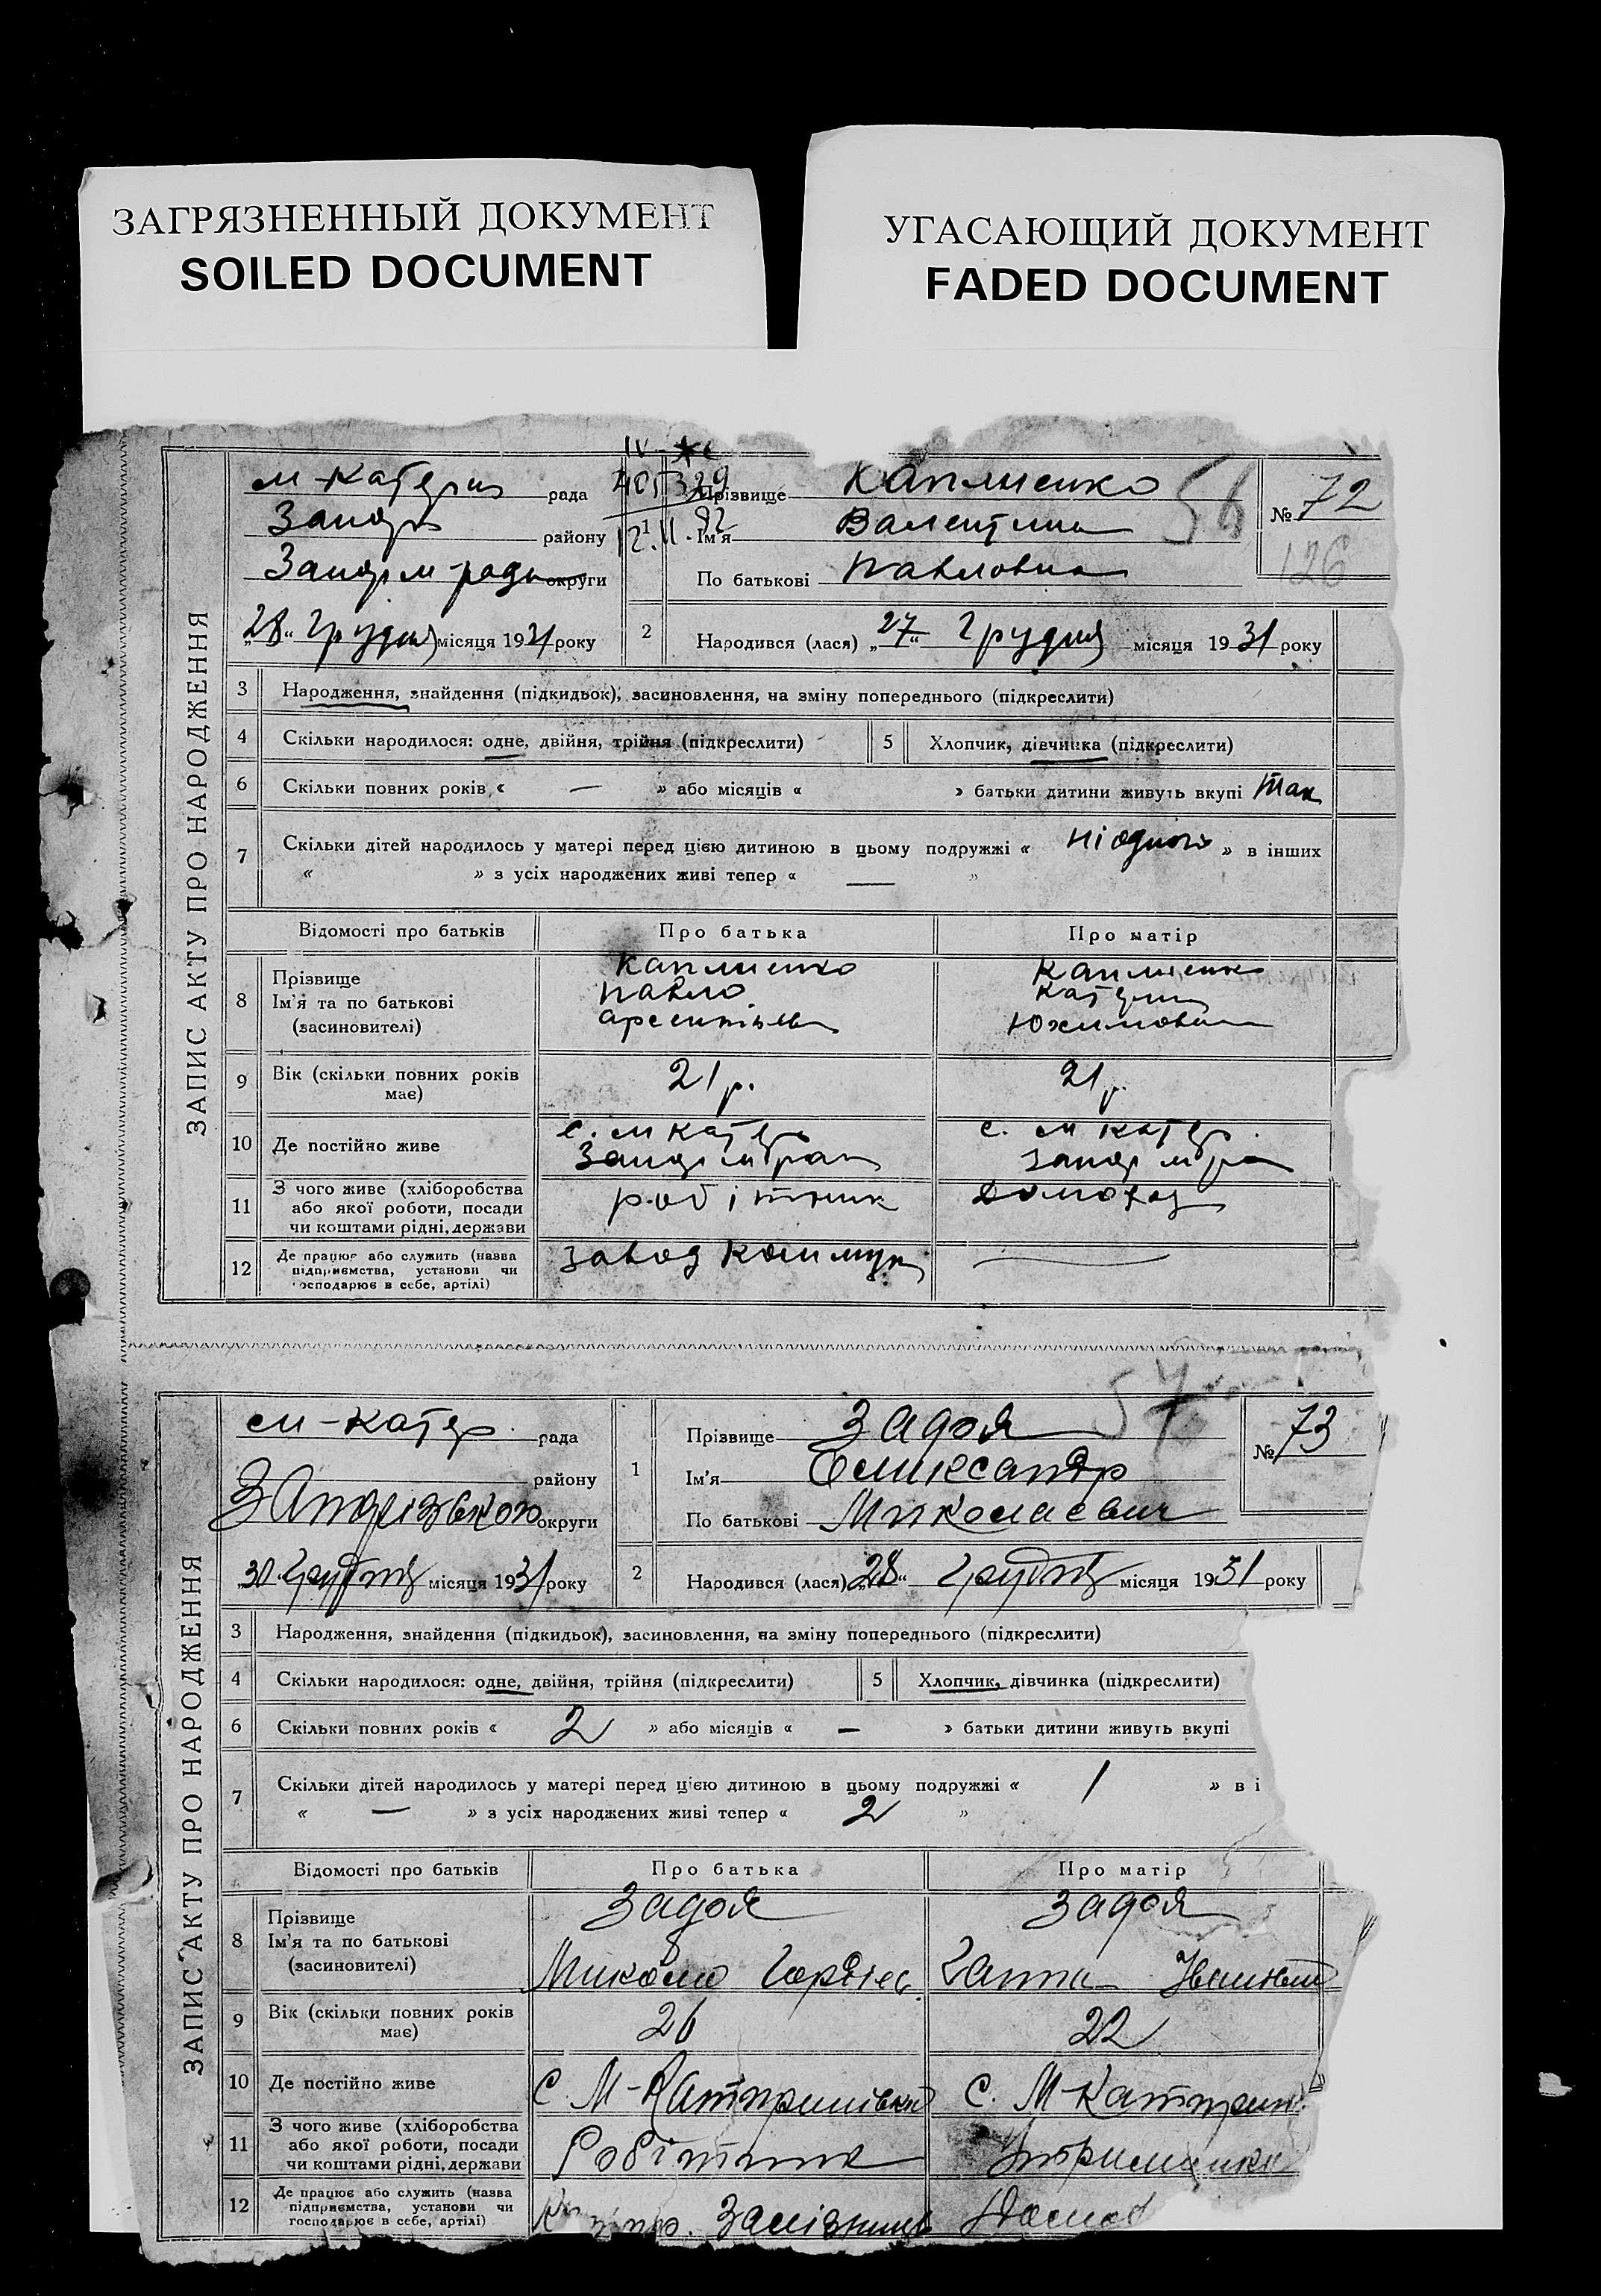 ЗАГРЯЗНЕННЫЙ ДОКУМЕНТ
SOILED DOCUMENT
УГАСАЮЩИЙ ДОКУМЕНТ
FADED DOCUMENT
ЗАПИС АКТУ ПРО НАРОДЖЕННЯ
м-Катерин рада
Запоріз району
Запоріз м-ради округи
„28“ Грудня місяця 1931 року
Прізвище Каплиенко
56
Ім'я Валентина
По батькові Павловна
№ 72
126
2 Народився (лася) „27“ Грудня місяця 1931 року
3 Народження, знайдення (підкидьок), засиновлення, на зміну попереднього (підкреслити)
4 Скільки народилося: одне, двійня, трійня (підкреслити) 5 Хлопчик, дівчинка (підкреслити)
6 Скільки повних років « — » або місяців « » батьки дитини живуть вкупі так
7 Скільки дітей народилось у матері перед цією дитиною в цьому подружжі « ніодного » в інших
« » з усіх народжених живі тепер « — »
Відомості про батьків Про батька Про матір
8 Прізвище Каплиенко Каплиенко
Ім'я та по батькові Павло Катерина
(засиновителі) Юхимовна
9 Вік (скільки повних років має) 21 р. 21 р.
10 Де постійно живе с. м Катер с. м Катер.
11 З чого живе (хліборобства або якої роботи, посади чи коштами рідні, держави робітник домогос
12 Де працює або служить (назва підприємства, установи чи господарює в себе, артілі) завод Комунар —
ЗАПИС АКТУ ПРО НАРОДЖЕННЯ
м-Катер. рада
району
Запорізького округи
„30“ Грудня місяця 1931 року
1 Прізвище Задоя
57
Ім'я Олександр
По батькові Миколаевич
№ 73
2 Народився (лася) „28“ Грудня місяця 1931 року
3 Народження, знайдення (підкидьок), засиновлення, на зміну попереднього (підкреслити)
4 Скільки народилося: одне, двійня, трійня (підкреслити) 5 Хлопчик, дівчинка (підкреслити)
6 Скільки повних років « 2 » або місяців « — » батьки дитини живуть вкупі
7 Скільки дітей народилось у матері перед цією дитиною в цьому подружжі « 1 » в і
« — » з усіх народжених живі тепер « 2 »
Відомості про батьків Про батька Про матір
8 Прізвище Задоя Задоя
Ім'я та по батькові Микола Гордієв. Ганна Іванівна
(засиновителі)
9 Вік (скільки повних років має) 26 22
10 Де постійно живе С. М-Катеринівка С. М-Катерин.
11 З чого живе (хліборобства або якої роботи, посади чи коштами рідні, держави Робітник Утриманка
12 Де працює або служить (назва підприємства, установи чи господарює в себе, артілі) Залізниця